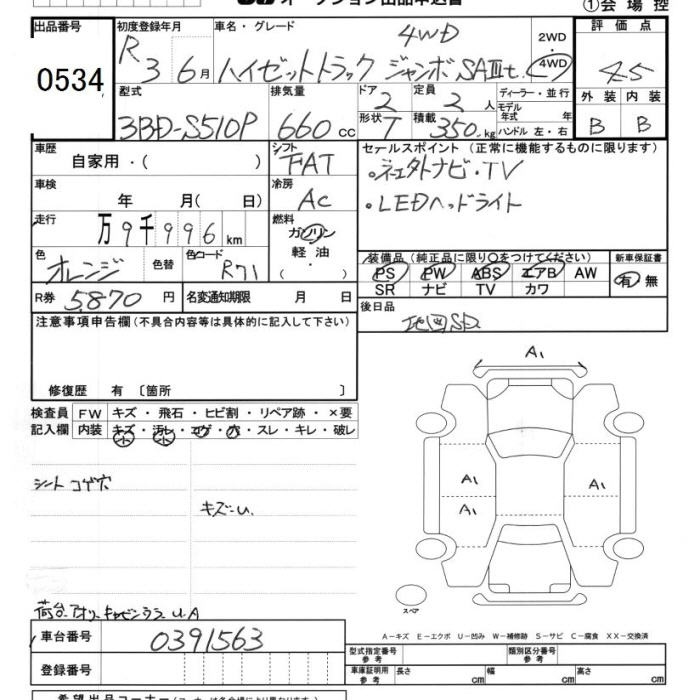 オークション出品申込書
①会場控
出品番号 0534
初度登録年月 R 3 6月
車名・グレード 4WD
ハイゼットトラック ジャンボ SAⅢt
2WD・4WD
評価点 4.5
外装 内装
B B
型式 3BD-S510P
排気量 660 cc
ドア 2
定員 2人
形状 T
積載 350 kg
ディーラー・並行
モデル年式 年
ハンドル 左・右
車歴 自家用・( )
シフト FAT
車検 年 月(日)
冷房 AC
走行 万9千996km
燃料 ガソリン・軽油・( )
色 オレンジ
色替
色コード R71
R券 5.870円
名変通知期限 月 日
セールスポイント(正常に機能するものに限ります)
・ネエ外ナビ・TV
・LEDヘッドライト
装備品(純正品に限り○をつけてください)
PS PW ABS エアB AW
SR ナビ TV カワ
新車保証書
有・無
後日品
地図SD
注意事項申告欄(不具合内容等は具体的に記入して下さい)
修復歴 有〔箇所 〕
検査員記入欄
FW キズ・飛石・ヒビ割・リペア跡・×要
内装 キズ・汚レ・コゲ・穴・スレ・キレ・破レ
小 小
シート コゲ穴
キズ=U.
A1
A1
A1
A1
スペア
A-キズ E-エクボ U-凹み W-補修跡 S-サビ C-腐食 XX-交換済
車台番号 0391563
登録番号
型式指定番号 参考
類別区分番号 参考
車庫証明用 参考 長さ cm 幅 cm 高さ cm
希望出品コーナー